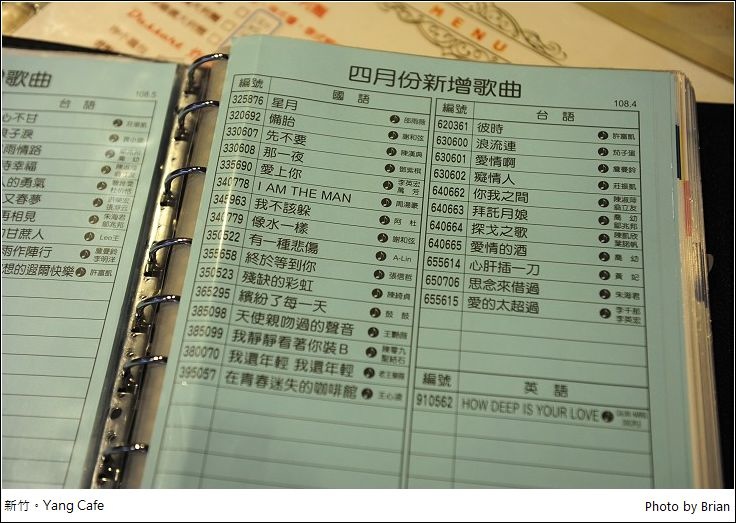 MENU
增歌曲
108.5
台語
心不甘
莊振凱
浪子淚
雨情路
時幸福
人的勇氣
又春夢
再相見
朱海君
甘蔗人
Leo王
雨作陣行
想的遐爾快樂
許富凱
四月份新增歌曲
108.4
編號 國語
325876 星月 邵雨薇
320692 備胎 謝和弦
330607 先不要 陳漢典
330608 那一夜 鄧紫棋
335690 愛上你 李英宏
340778 I AM THE MAN 周湯豪
348963 我不該躲 阿杜
340779 像水一樣 謝和弦
350522 有一種悲傷 A-Lin
355658 終於等到你 張信哲
350523 殘缺的彩虹 陳綺貞
365295 繽紛了每一天 鼓鼓
385098 天使親吻過的聲音 王艷薇
385099 我靜靜看著你裝B 陳零九
380070 我還年輕 我還年輕 老王樂隊
395057 在青春迷失的咖啡館 王心凌
編號 台語
620361 彼時 許富凱
630600 浪流連 茄子蛋
630601 愛情啊 詹曼鈴
630602 癡情人 莊振凱
640662 你我之間 陳淑萍 翁立友
640663 拜託月娘 喬幼 鄔兆邦
640664 探戈之歌 陳凱欣
640665 愛情的酒 喬幼
655614 心肝插一刀 黃妃
650706 思念來借過 朱海君
655615 愛的太超過 李千那 李英宏
編號 英語
910562 HOW DEEP IS YOUR LOVE CALVIN HARRIS DISCIPLES
新竹。Yang Cafe
Photo by Brian